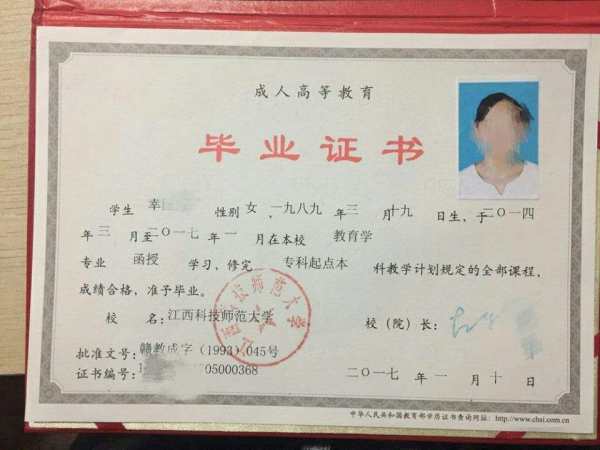 成人高等教育
毕业证书
学生 幸 性别 女，一九八九 年 三 月 十九 日生，于二〇一四
年 三 月至二〇一七 年 一 月在本校 教育学
专业 函授 学习，修完 专科起点本 科教学计划规定的全部课程，
成绩合格，准予毕业。
校 名：江西科技师范大学
校（院）长：
批准文号：赣教成字（1993）045号
证书编号： 05000368
二〇一七 年 一 月 十 日
中华人民共和国教育部学历证书查询网址：http://www.chsi.com.cn